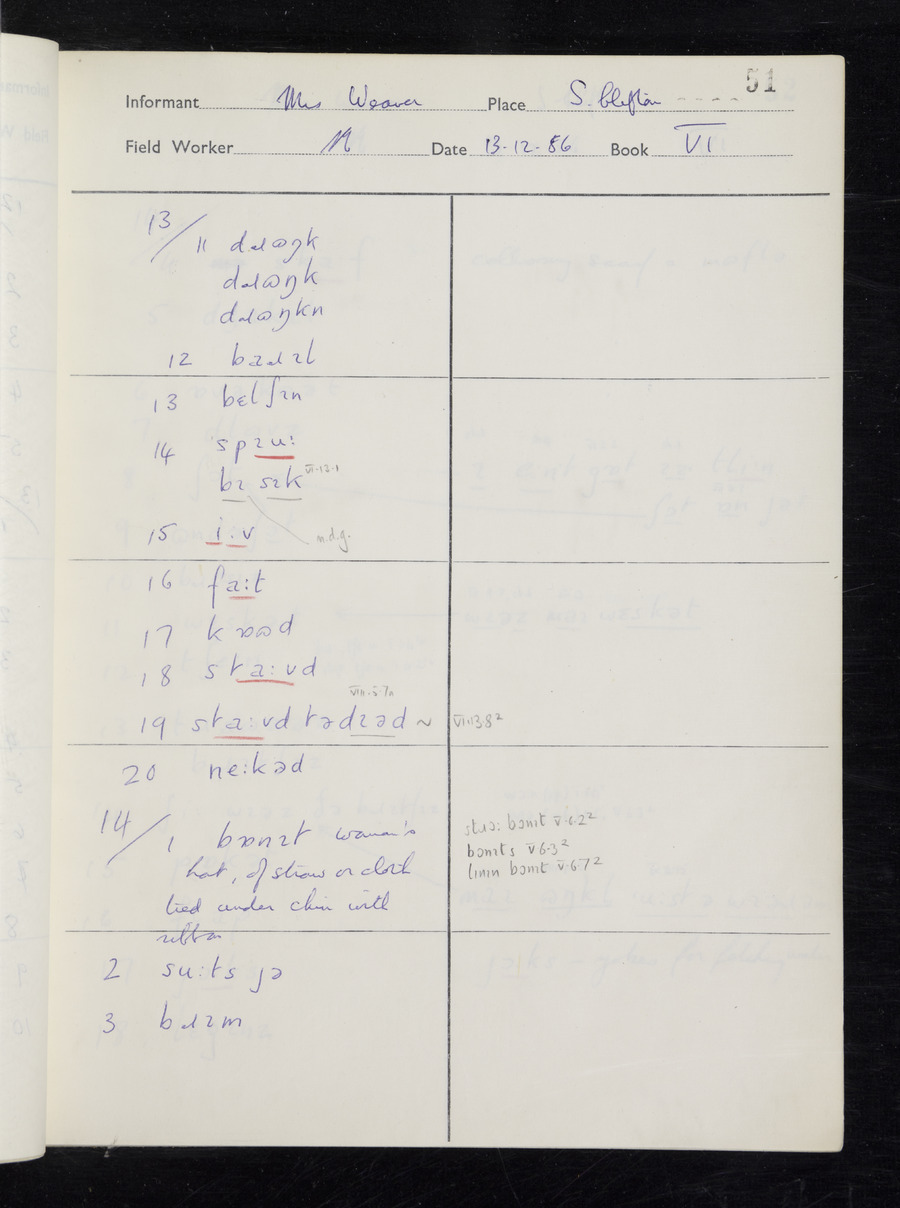 51
Informant Mrs Weaver Place S. Clifton
Field Worker Date 13-12-86 Book VI
13/
11 dɹɒŋk
dɹɒŋk
dɹɒŋkn
12 bɹ
13 bɛlʃɪn
14 spɪu:
bɪ sɪk VI-13-1
15 i:v n.d.g.
16 fa:t
17 k d
18 sta:vd
VIII-5-7a
19 sta:vd tədɪəd ~ VI-13-8²
20 ne:kəd
14/
1 bɒnɪt woman's
hat, of straw or cloth
tied under chin with
ribbon
stɹɔ: bɒnɪt V-6-2²
bɒnɪts V 6-3²
lɪnɪn bɒnɪt V-6-7²
2 su:ts jə
3 bɹ m